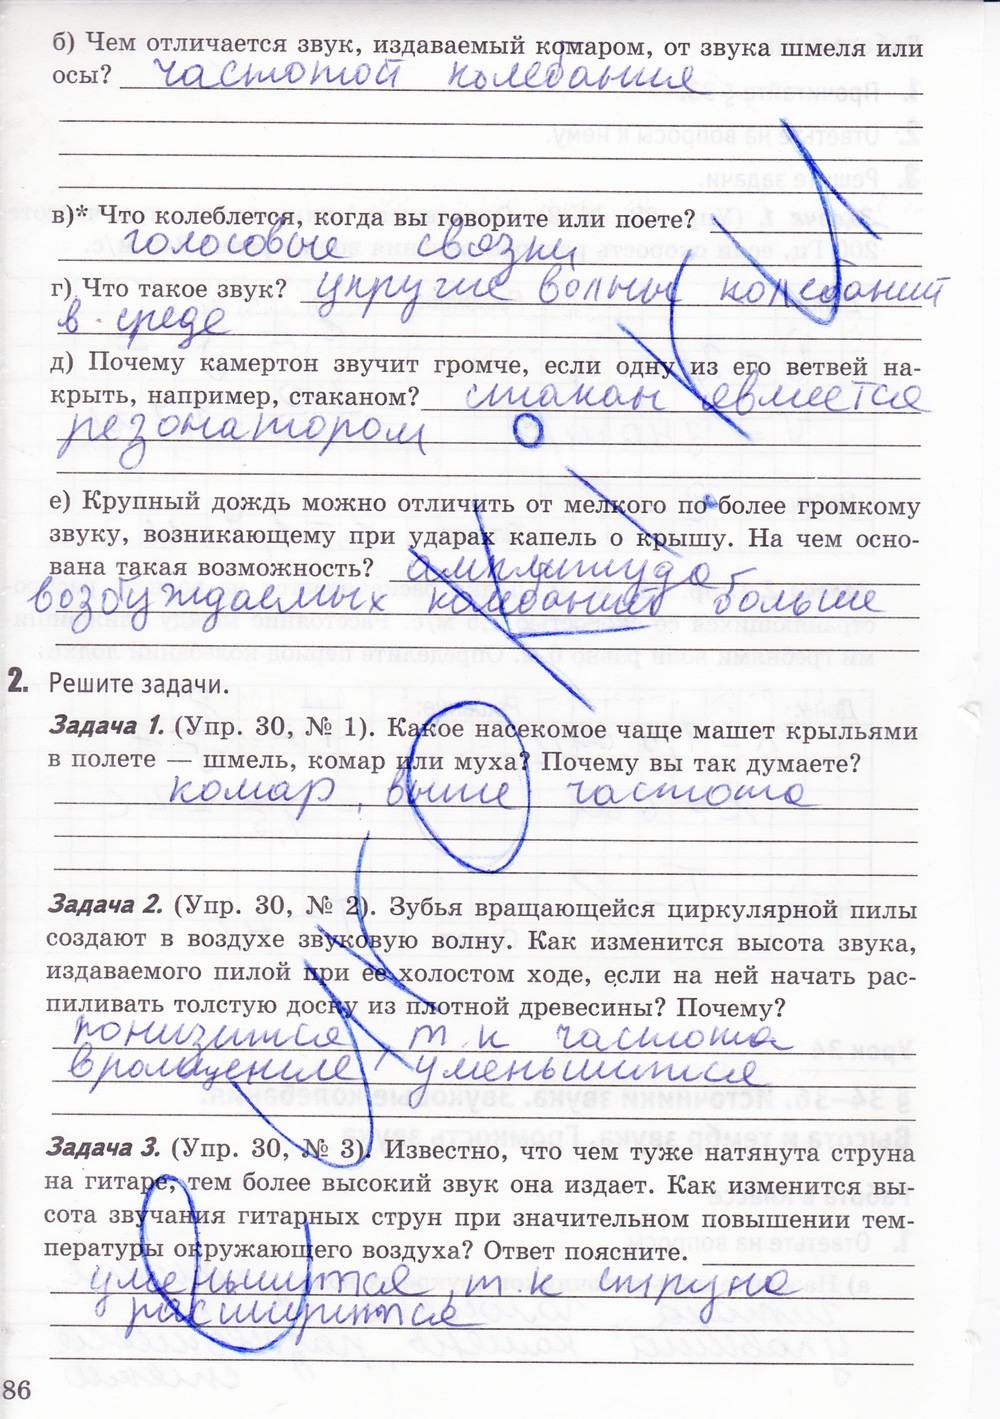 б) Чем отличается звук, издаваемый комаром, от звука шмеля или
осы? частотой колебания
в)* Что колеблется, когда вы говорите или поете?
голосовые связки
г) Что такое звук? упругие волны колебаний
в среде
д) Почему камертон звучит громче, если одну из его ветвей на-
крыть, например, стаканом? стакан евляется
резонатором
е) Крупный дождь можно отличить от мелкого по более громкому
звуку, возникающему при ударах капель о крышу. На чем осно-
вана такая возможность? амплитуда
возбуждаемых колебаний больше
2. Решите задачи.
Задача 1. (Упр. 30, № 1). Какое насекомое чаще машет крыльями
в полете — шмель, комар или муха? Почему вы так думаете?
комар, выше частота
Задача 2. (Упр. 30, № 2). Зубья вращающейся циркулярной пилы
создают в воздухе звуковую волну. Как изменится высота звука,
издаваемого пилой при ее холостом ходе, если на ней начать рас-
пиливать толстую доску из плотной древесины? Почему?
понизится, т.к частота
вращение уменьшится
Задача 3. (Упр. 30, № 3). Известно, что чем туже натянута струна
на гитаре, тем более высокий звук она издает. Как изменится вы-
сота звучания гитарных струн при значительном повышении тем-
пературы окружающего воздуха? Ответ поясните.
уменьшится, т.к струна
расширится
86